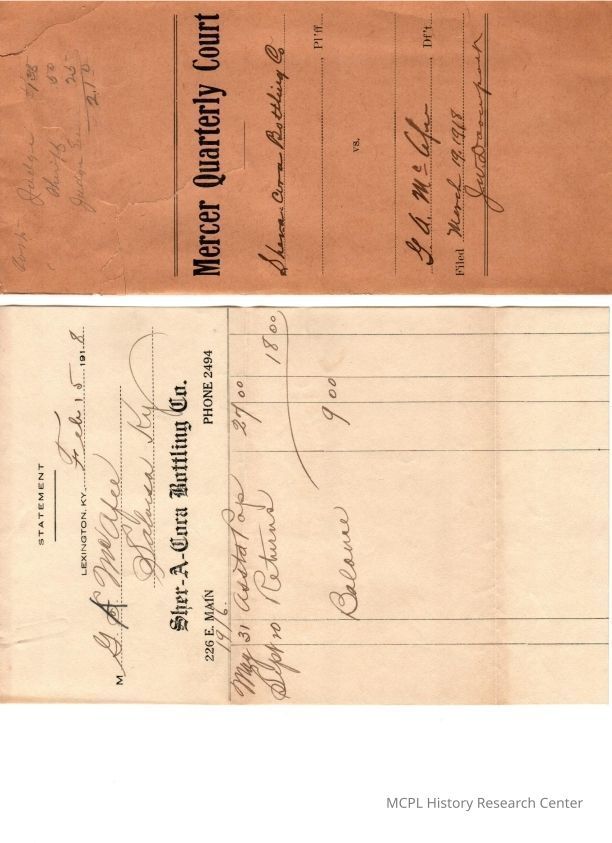 Mercer Quarterly Court
Sher-a-Cora Bottling Co
Pl'ff
vs.
G. A. McAfee
Df't.
Filed March 19, 1918
Judge
Sheriff 50
Judge 25
2.10
STATEMENT
LEXINGTON, KY. Feb 15 1918
M G A McAfee
Salvisa Ky
Sher-A-Cora Bottling Co.
226 E. MAIN PHONE 2494
1916.
May 31 Asstd Pop 27 00
Sept 10 Returns 18 00
Balance 9 00
MCPL History Research Center